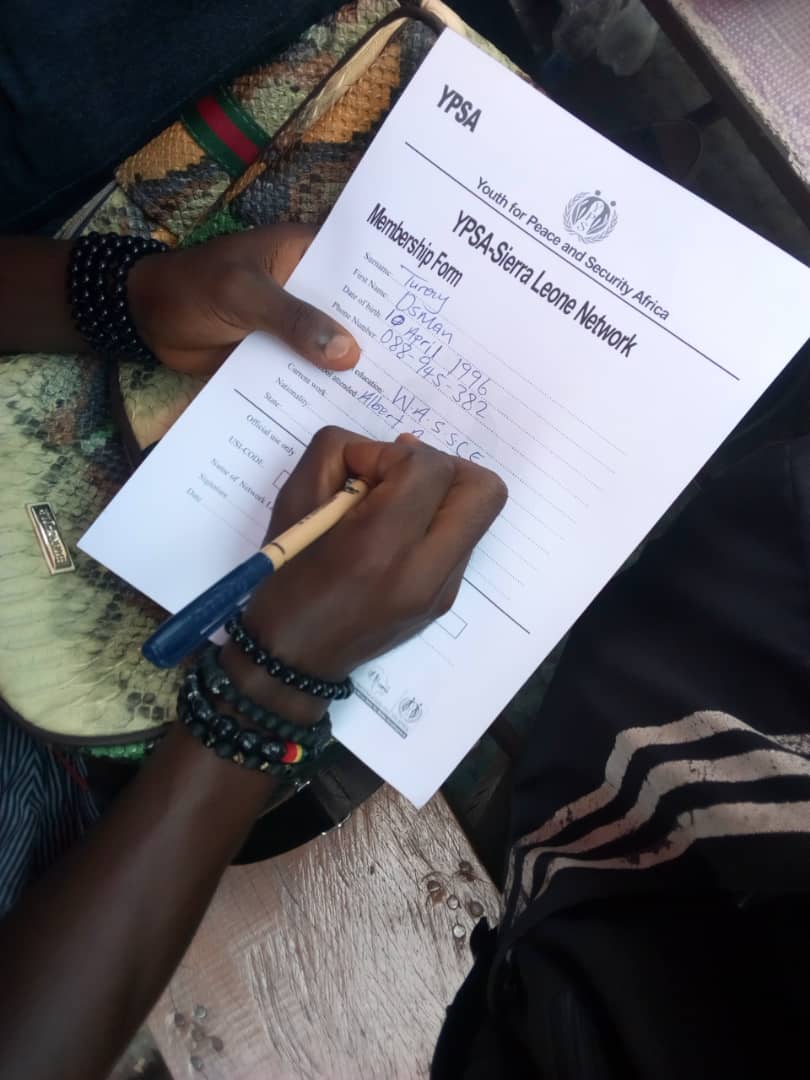 YPSA
Youth for Peace and Security Africa
YPSA-Sierra Leone Network
Membership Form
Surname Turay
First Name Osman
Date of birth 10 April 1996
Phone Number 088-945-382
education: W.A.S.S.C.E
attended Albert
Current work
Nationality
State
Official use only
USL-CODE
Name of Network
Signature
Date